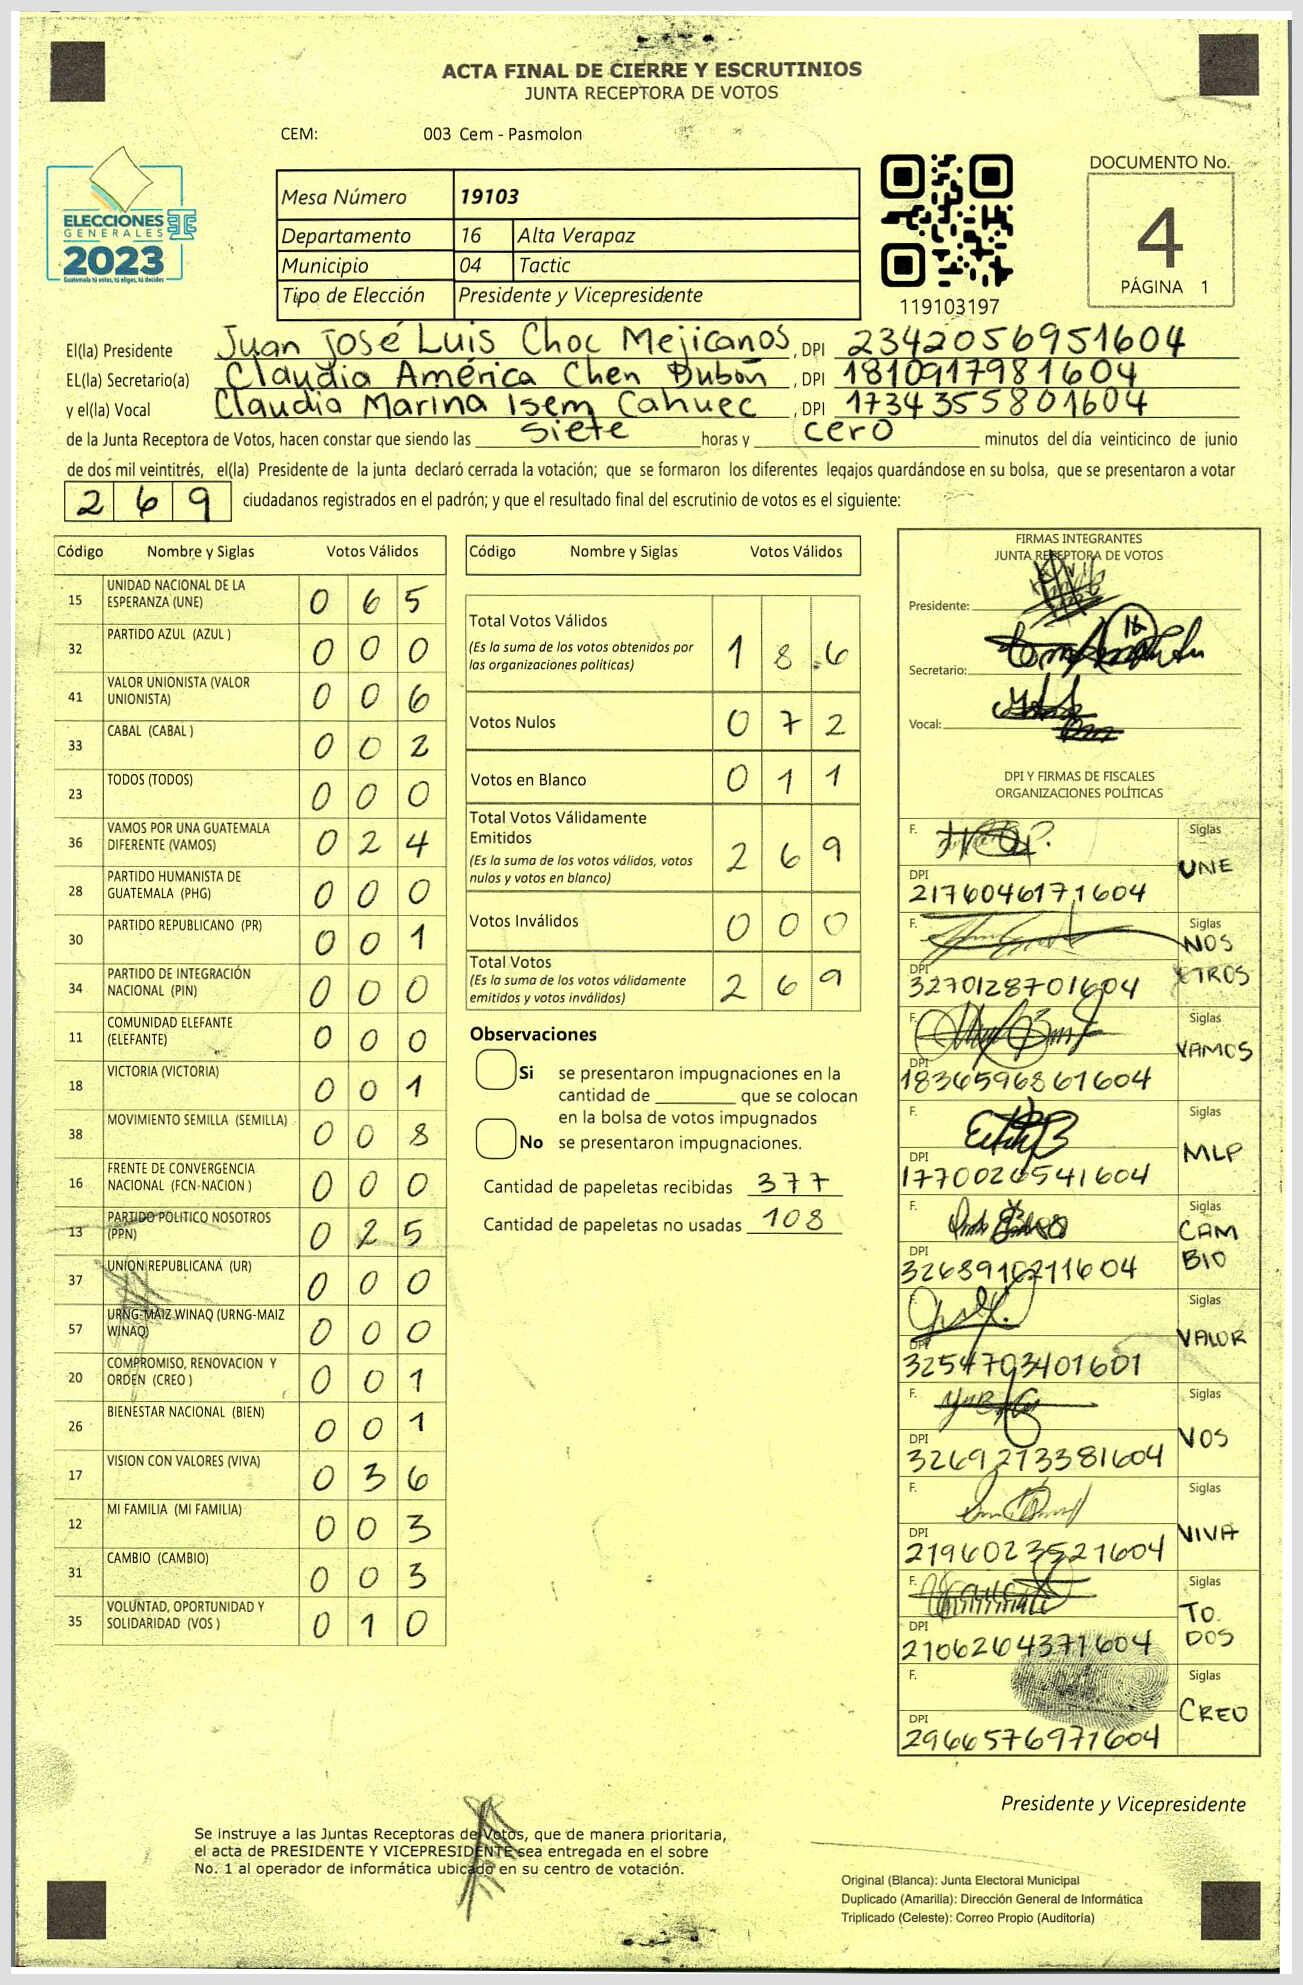 ACTA FINAL DE CIERRE Y ESCRUTINIOS
JUNTA RECEPTORA DE VOTOS
CEM: 003 Cem - Pasmolon
ELECCIONES
GENERALES
2023
Guatemala tú votas, tú eliges, tú decides
Mesa Número 19103
Departamento 16 Alta Verapaz
Municipio 04 Tactic
Tipo de Elección Presidente y Vicepresidente
119103197
DOCUMENTO No.
4
PÁGINA 1
El(la) Presidente Juan José Luis Choc Mejicanos, DPI 2342056951604
EL(la) Secretario(a) Claudia América Chen Bubón, DPI 1810917981604
y el(la) Vocal Claudia Marina Isem Cahuec, DPI 1734355801604
de la Junta Receptora de Votos, hacen constar que siendo las siete horas y cero minutos del día veinticinco de junio
de dos mil veintitrés, el(la) Presidente de la junta declaró cerrada la votación; que se formaron los diferentes legajos quardándose en su bolsa, que se presentaron a votar
269 ciudadanos registrados en el padrón; y que el resultado final del escrutinio de votos es el siguiente:
Código Nombre y Siglas Votos Válidos
15 UNIDAD NACIONAL DE LA ESPERANZA (UNE) 0 6 5
32 PARTIDO AZUL (AZUL ) 0 0 0
41 VALOR UNIONISTA (VALOR UNIONISTA) 0 0 6
33 CABAL (CABAL ) 0 0 2
23 TODOS (TODOS) 0 0 0
36 VAMOS POR UNA GUATEMALA DIFERENTE (VAMOS) 0 2 4
28 PARTIDO HUMANISTA DE GUATEMALA (PHG) 0 0 0
30 PARTIDO REPUBLICANO (PR) 0 0 1
34 PARTIDO DE INTEGRACIÓN NACIONAL (PIN) 0 0 0
11 COMUNIDAD ELEFANTE (ELEFANTE) 0 0 0
18 VICTORIA (VICTORIA) 0 0 1
38 MOVIMIENTO SEMILLA (SEMILLA) 0 0 8
16 FRENTE DE CONVERGENCIA NACIONAL (FCN-NACION ) 0 0 0
13 PARTIDO POLITICO NOSOTROS (PPN) 0 2 5
37 UNION REPUBLICANA (UR) 0 0 0
57 URNG-MAIZ WINAQ (URNG-MAIZ WINAQ) 0 0 0
20 COMPROMISO, RENOVACION Y ORDEN (CREO ) 0 0 1
26 BIENESTAR NACIONAL (BIEN) 0 0 1
17 VISION CON VALORES (VIVA) 0 3 6
12 MI FAMILIA (MI FAMILIA) 0 0 3
31 CAMBIO (CAMBIO) 0 0 3
35 VOLUNTAD, OPORTUNIDAD Y SOLIDARIDAD (VOS ) 0 1 0
Código Nombre y Siglas Votos Válidos
Total Votos Válidos
(Es la suma de los votos obtenidos por
las organizaciones políticas) 1 8 6
Votos Nulos 0 7 2
Votos en Blanco 0 1 1
Total Votos Válidamente
Emitidos
(Es la suma de los votos válidos, votos
nulos y votos en blanco) 2 6 9
Votos Inválidos 0 0 0
Total Votos
(Es la suma de los votos válidamente
emitidos y votos inválidos) 2 6 9
Observaciones
Si se presentaron impugnaciones en la
cantidad de ________ que se colocan
en la bolsa de votos impugnados
No se presentaron impugnaciones.
Cantidad de papeletas recibidas 377
Cantidad de papeletas no usadas 108
FIRMAS INTEGRANTES
JUNTA RECEPTORA DE VOTOS
Presidente:
Secretario:
Vocal:
DPI Y FIRMAS DE FISCALES
ORGANIZACIONES POLÍTICAS
F. Siglas
UNE
DPI
2176046171604
F. Siglas
NOS
OTROS
DPI
3270128701604
F. Siglas
VAMOS
DPI
1836596861604
F. Siglas
MLP
DPI
1770026541604
F. Siglas
CAM
BIO
DPI
3268910211604
F. Siglas
VALOR
DPI
3254703401601
F. Siglas
VOS
DPI
3269273381604
F. Siglas
VIVA
DPI
2196023521604
F. Siglas
TO
DOS
DPI
2106264371604
F. Siglas
CREO
DPI
2966576971604
Presidente y Vicepresidente
Se instruye a las Juntas Receptoras de Votos, que de manera prioritaria,
el acta de PRESIDENTE Y VICEPRESIDENTE sea entregada en el sobre
No. 1 al operador de informática ubicado en su centro de votación.
Original (Blanca): Junta Electoral Municipal
Duplicado (Amarilla): Dirección General de Informática
Triplicado (Celeste): Correo Propio (Auditoría)